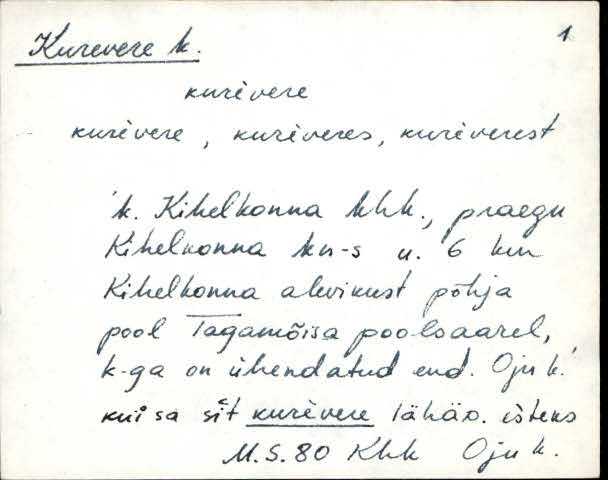 Kurevere k. 1
kurèvere
kurèvere, kurèveres, kurèverest
k. Kihelkonna khk., praegu
Kihelkonna kn-s u. 6 km
Kihelkonna alevikust põhja
pool Tagamõisa poolsaarel,
k-ga on ühendatud end. Oju k.
kui sa sit kurèvere lähäo.
M.S. 80 Khk Oju k.